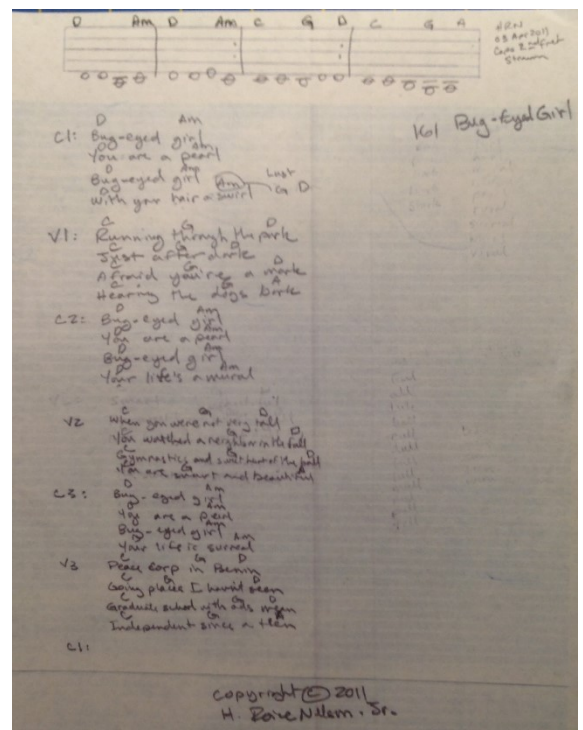 D Am D Am C G D C G A
HRN
03 Apr 2011
Capo 2nd fret
Strum
161 Bug-Eyed Girl
D Am
C1: Bug-eyed girl
D Am
You are a pearl
D Am
Bug-eyed girl Last
D Am G D
With your hair a swirl
C G D
V1: Running through the park
C G D
Just after dark
C G D
Afraid you're a mark
C G A
Hearing the dogs bark
D Am
C2: Bug-eyed girl
D Am
You are a pearl
D Am
Bug-eyed girl
D Am
Your life's a mural
C G D
V2 When you were not very tall
C G D
You watched a neighbor in the fall
C G D
Gymnastics and sweetheart of the ball
C G A
You are smart and beautiful
D Am
C3: Bug-eyed girl
D Am
You are a pearl
D Am
Bug-eyed girl
D Am
Your life is surreal
C G D
V3 Peace Corp in Benin
C G D
Going places I haven't seen
C G D
Graduate school with ads mean
C G A
Independent since a teen
C1:
Copyright © 2011
H. Jr.